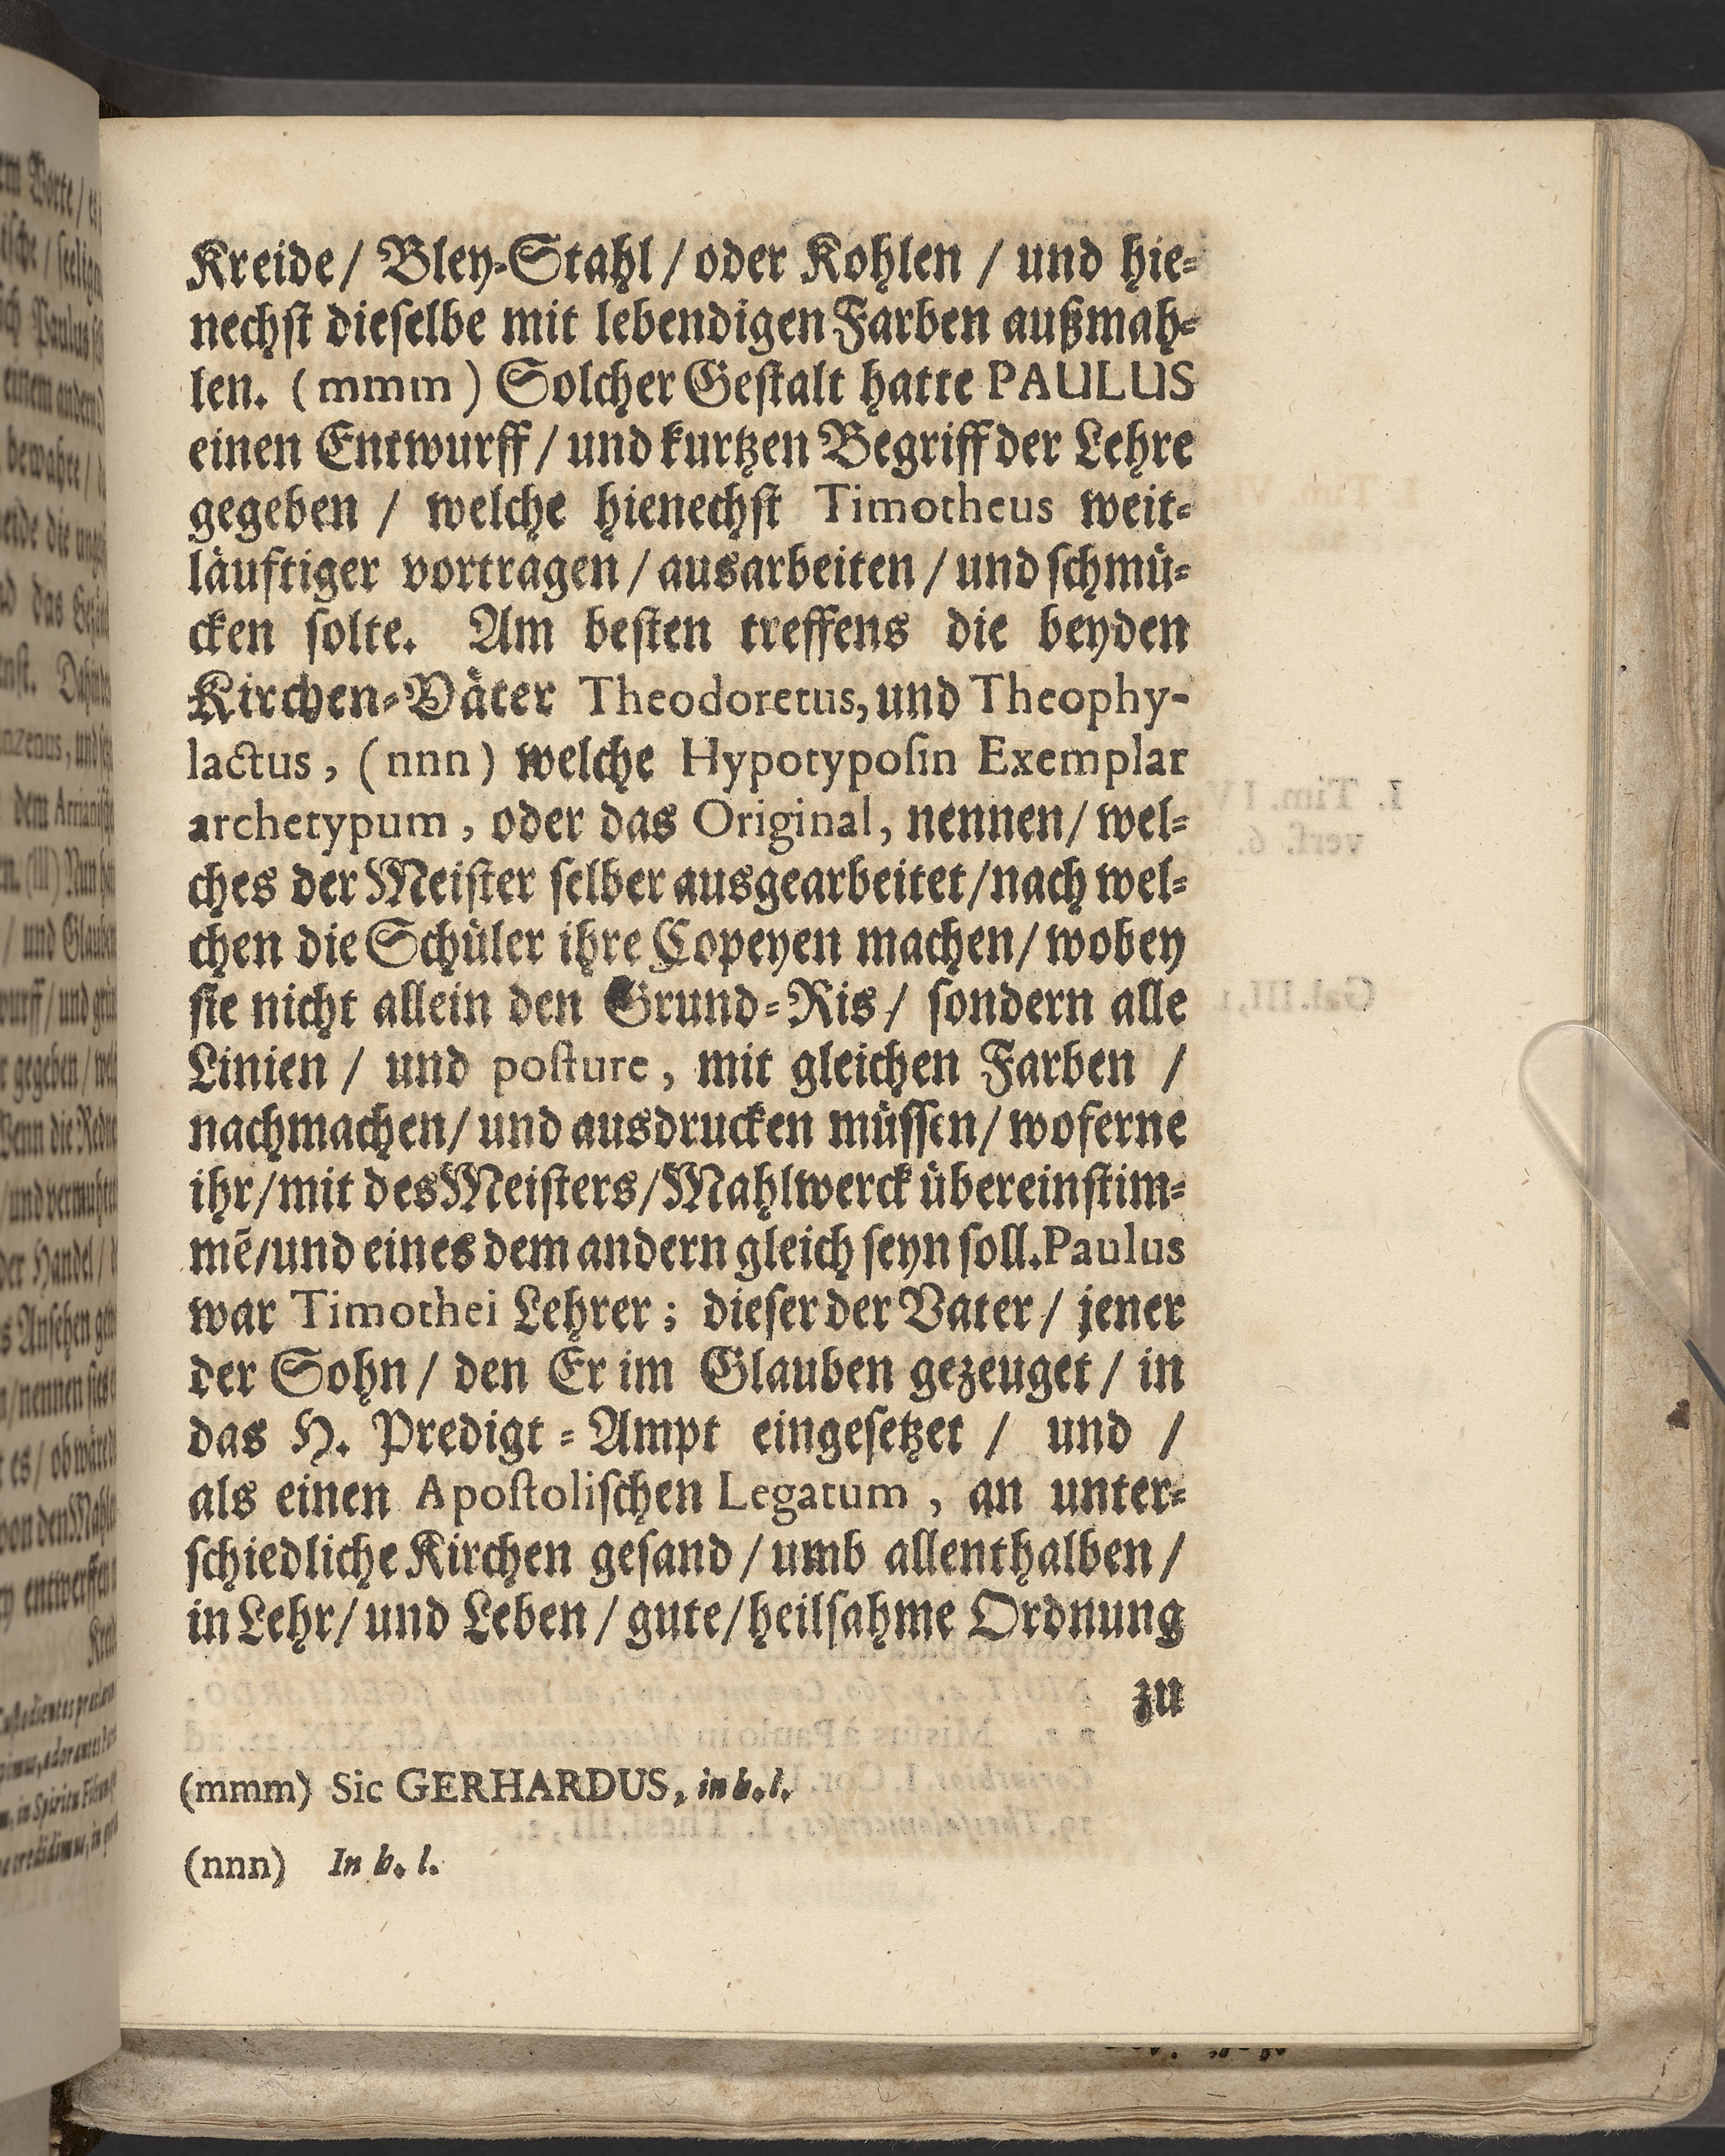 Kreide/ Bley-Stahl / oder Kohlen / und hie-
nechſt dieſelbe mit lebendigen Farben außmah-
len. (mmm) Solcher Geſtalt hatte PAULUS
einen Entwurff / und kurtzen Begriff der Lehre
gegeben / welche hienechſt Timotheus weit-
läufftiger vortragen / ausarbeiten / und ſchmü-
cken ſolte. Am beſten treffens die beyden
Kirchen-Väter Theodoretus, und Theophy-
lactus, (nnn) welche Hypotypoſin Exemplar
archetypum, oder das Original, nennen/ wel-
ches der Meiſter ſelber ausgearbeitet/nach wel-
chen die Schüler ihre Copeyen machen/ wobey
ſie nicht allein den Grund-Ris/ ſondern alle
Linien / und poſture, mit gleichen Farben /
nachmachen/ und ausdrucken müſſen/ woferne
ihr/mit des Meiſters/Mahlwerck übereinſtim-
mē/und eines dem andern gleich ſeyn ſoll. Paulus
war Timothei Lehrer; dieſer der Vater/ jener
der Sohn/ den Er im Glauben gezeuget/ in
das H. Predigt-Ampt eingeſetzet / und /
als einen Apoſtoliſchen Legatum, an unter-
ſchiedliche Kirchen geſand / umb allenthalben /
in Lehr/ und Leben/ gute/ heilſahme Ordnung
zu
(mmm) Sic GERHARDUS, in h. l.
(nnn) In h. l.